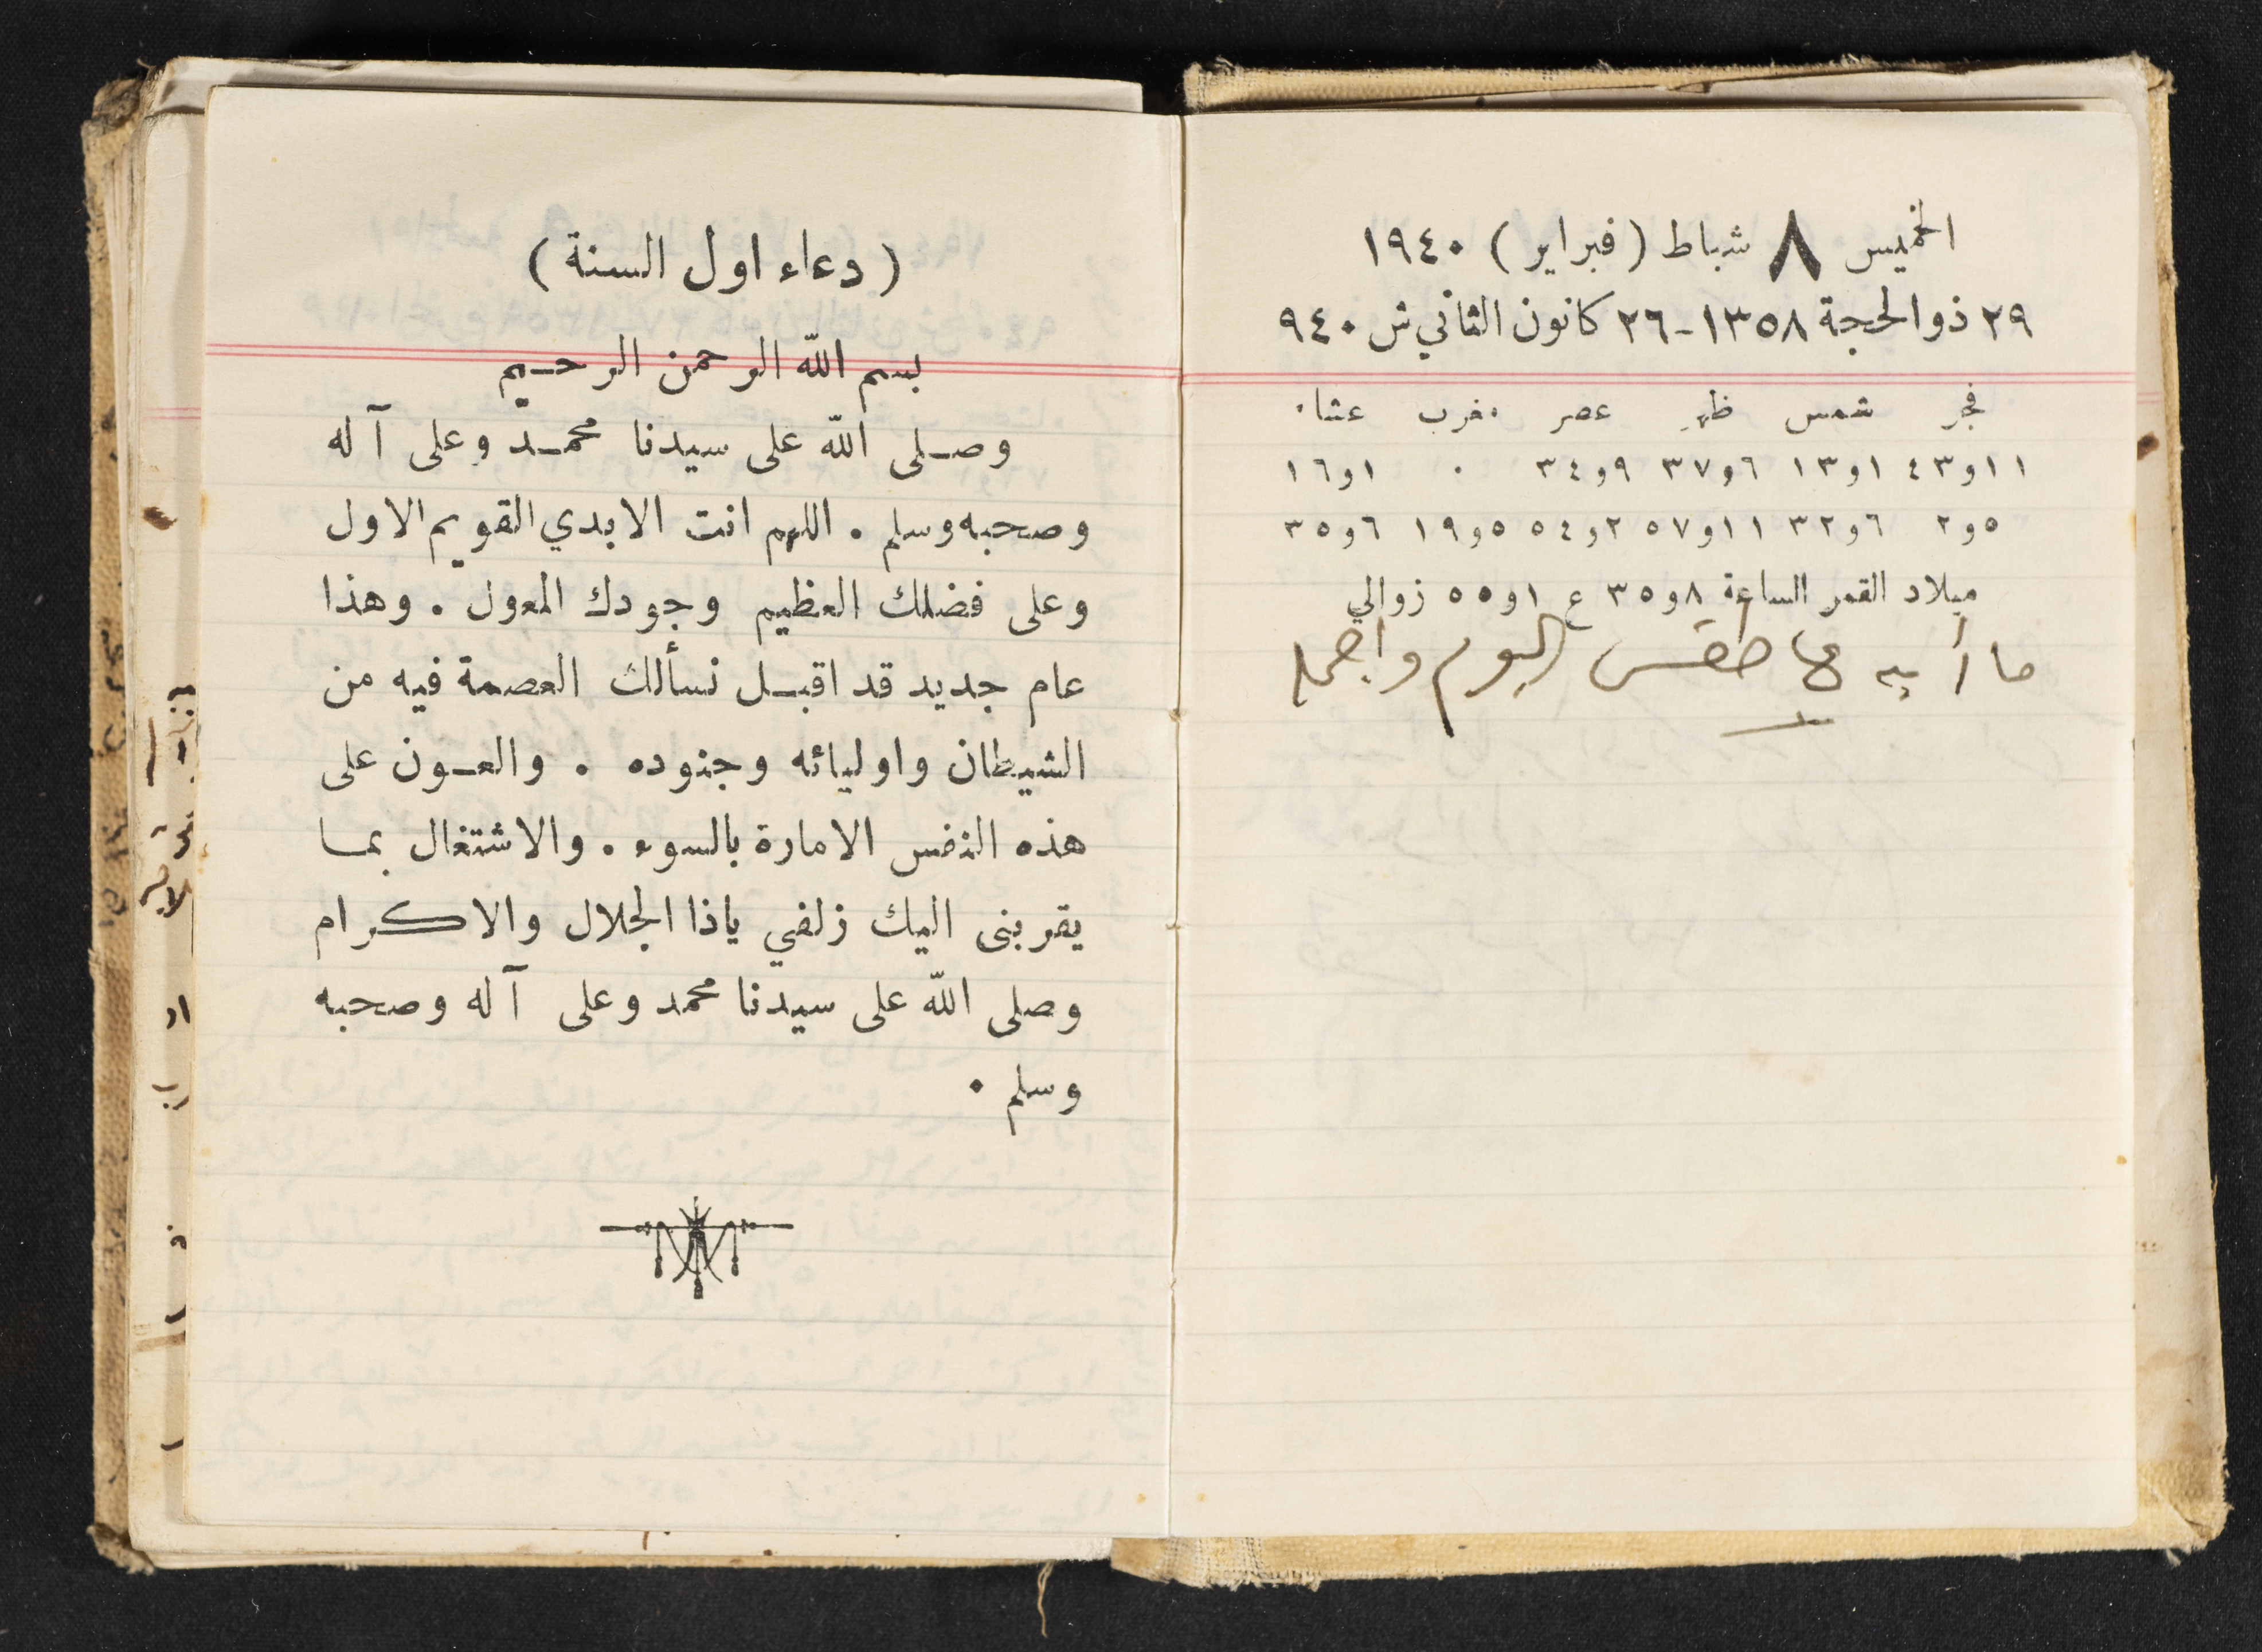 الخميس ٨ شباط (فبراير) ١٩٤٠
٢٩ ذوالحجة ١٣٥٨-٢٦ كانون الثاني ش ٩٤٠
فجر شمس ظهر عصر مغرب عشاء
١١و٤٣ ١و١٣ ٦و٣٧ ٩و٣٤ ٠ ١و١٦
٥و٢ ٦و٣٢ ١١و٥٧ ٢و٥٤ ٥و١٩ ٦و٣٥
ميلاد القمر الساعة ٨و٣٥ ع ١و٥٥ زوالي
طقس اليوم
(دعاء اول السنة)
بسم الله الرحمن الرحيم
وصلى الله على سيدنا محمد وعلى آله
وصحبه وسلم . اللهم انت الابدي القويم الاول
وعلى فضلك العظيم وجودك المعول . وهذا
عام جديد قد اقبل نسألك العصمة فيه من
الشيطان واوليائه وجنوده . والعون على
هذه النفس الامارة بالسوء . والاشتغال بما
يقربنى اليك زلفي ياذا الجلال والاكرام
وصلى الله على سيدنا محمد وعلى آله وصحبه
وسلم .